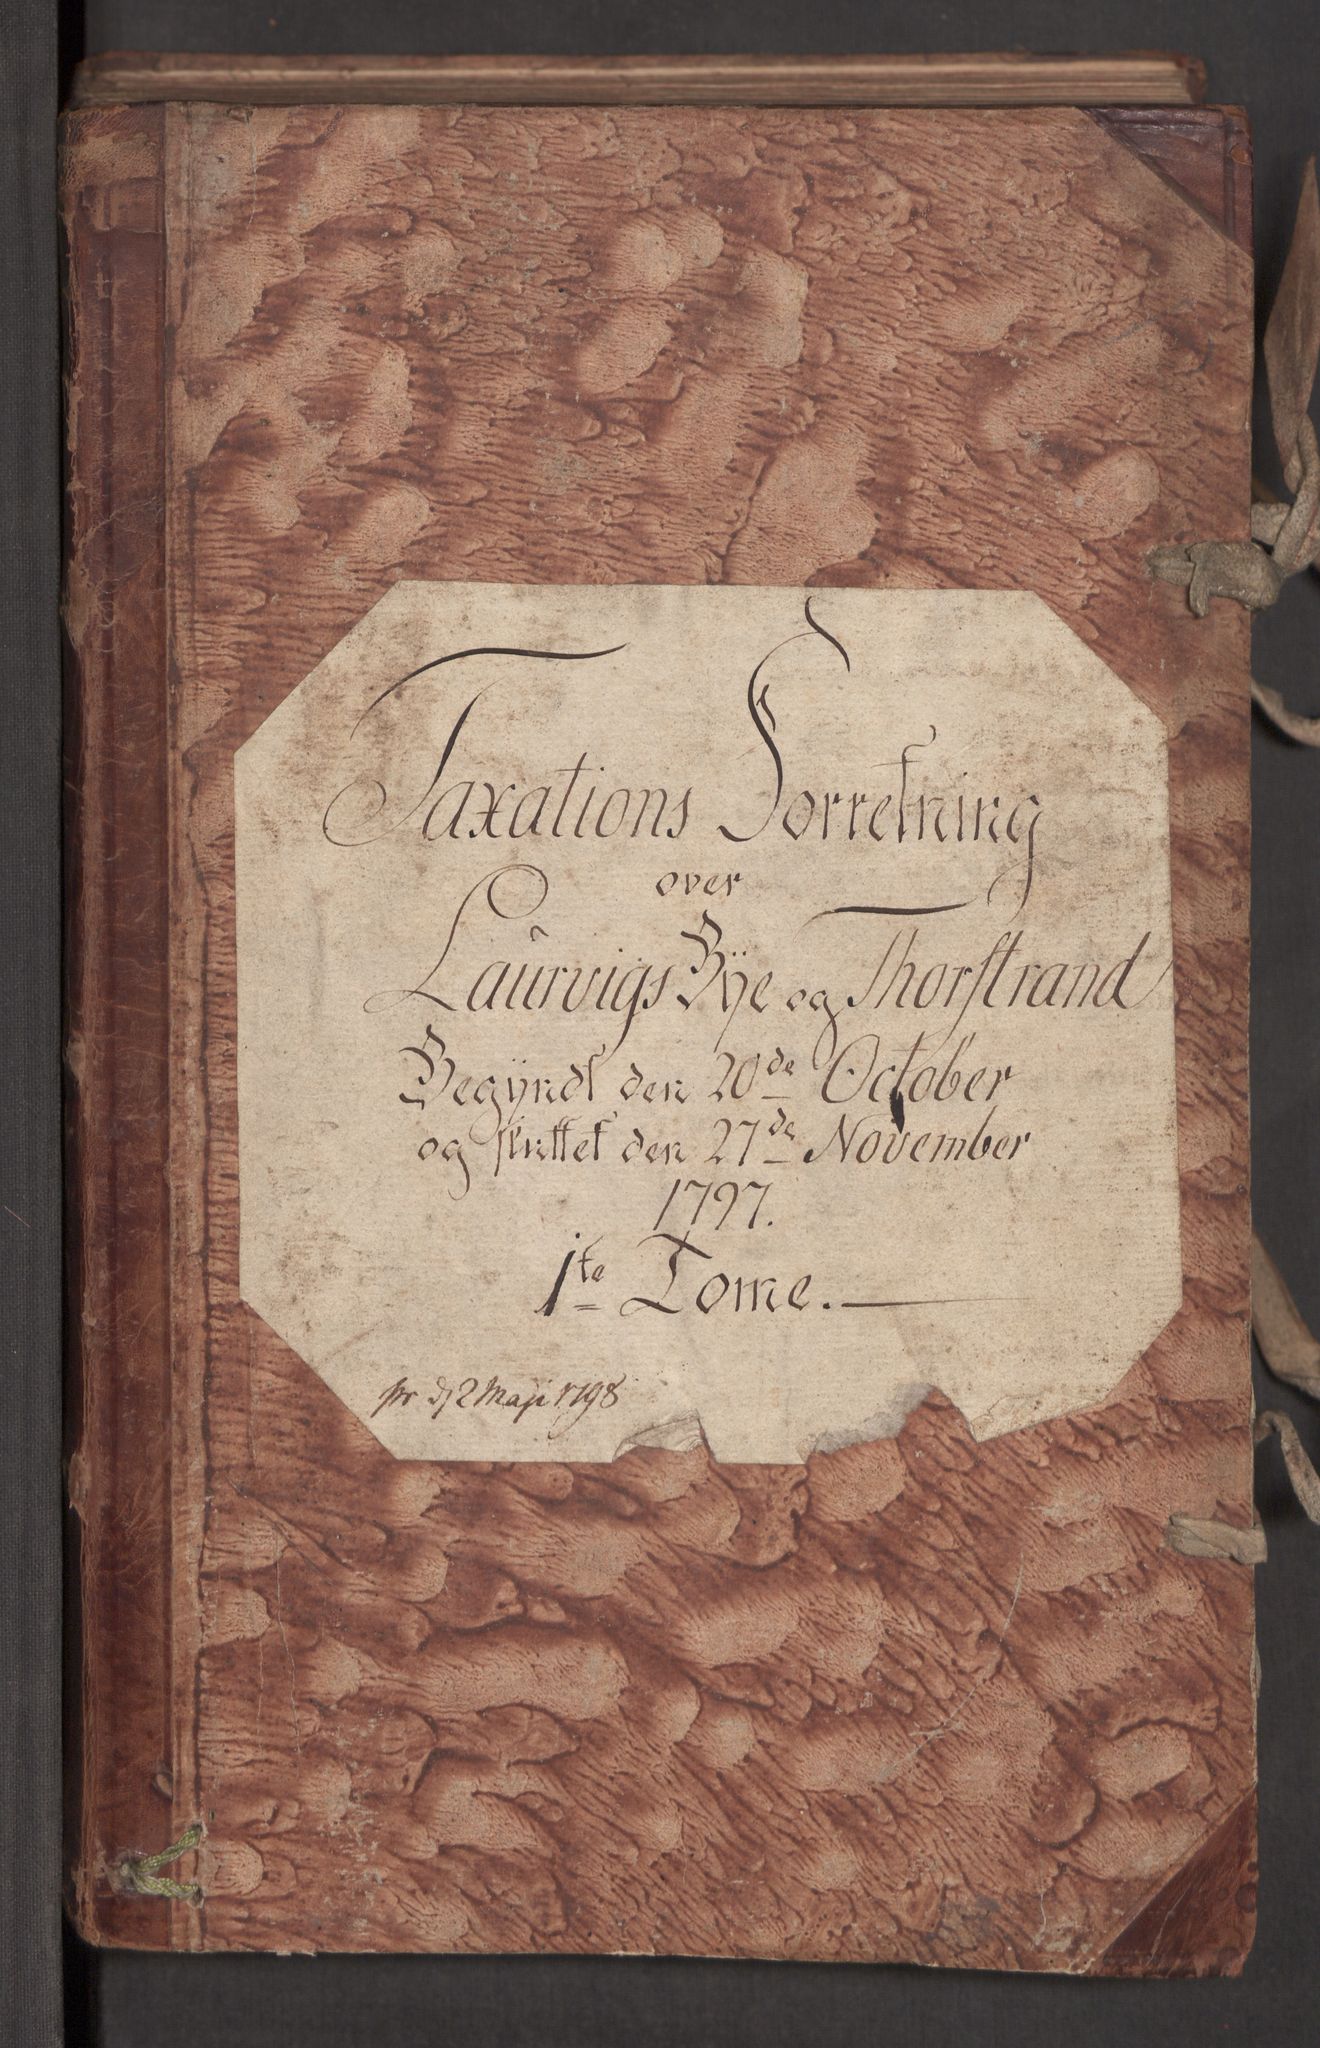 Taxations Forretning
over
Laurvigs Bÿe og Thorstrand
Begÿndt den 20de October
og sluttet den 27de November
1797.
1te Tome.
pr d/2 Maji 1798